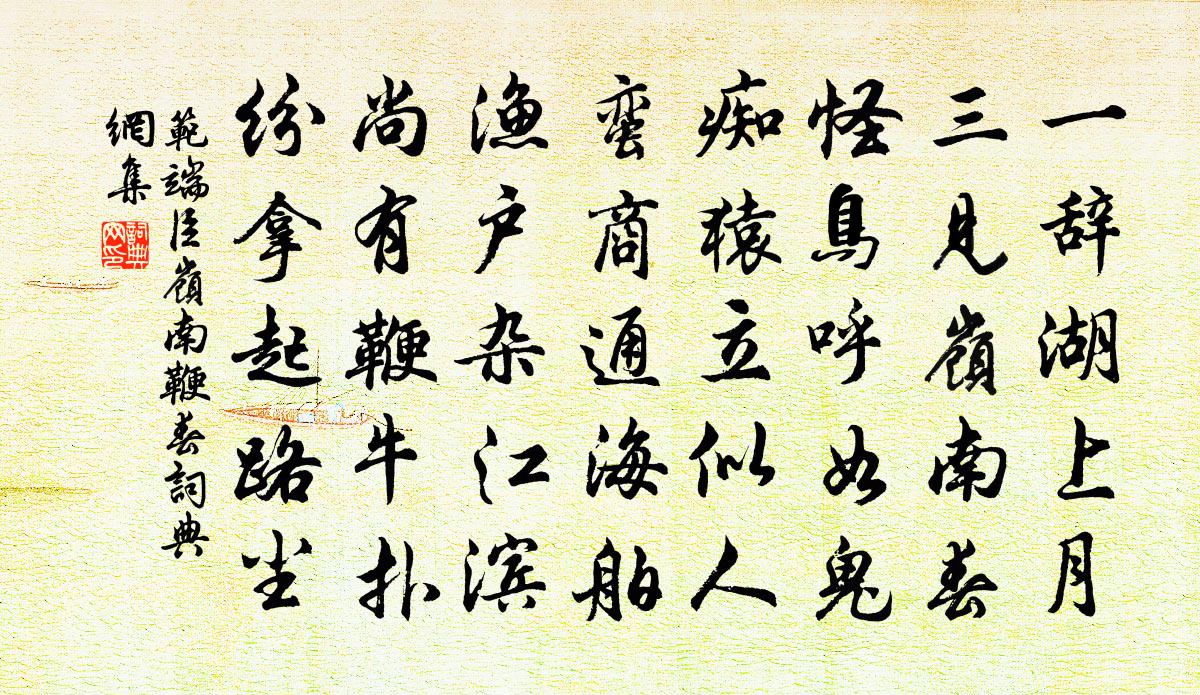 一辞湖上月
三见岭南春
怪鸟呼如鬼
痴猿立似人
蛮商通海舶
渔户杂江滨
尚有鞭牛扑
纷拿起路尘
範端臣嶺南鞭春詞典
網集
詞典
网印